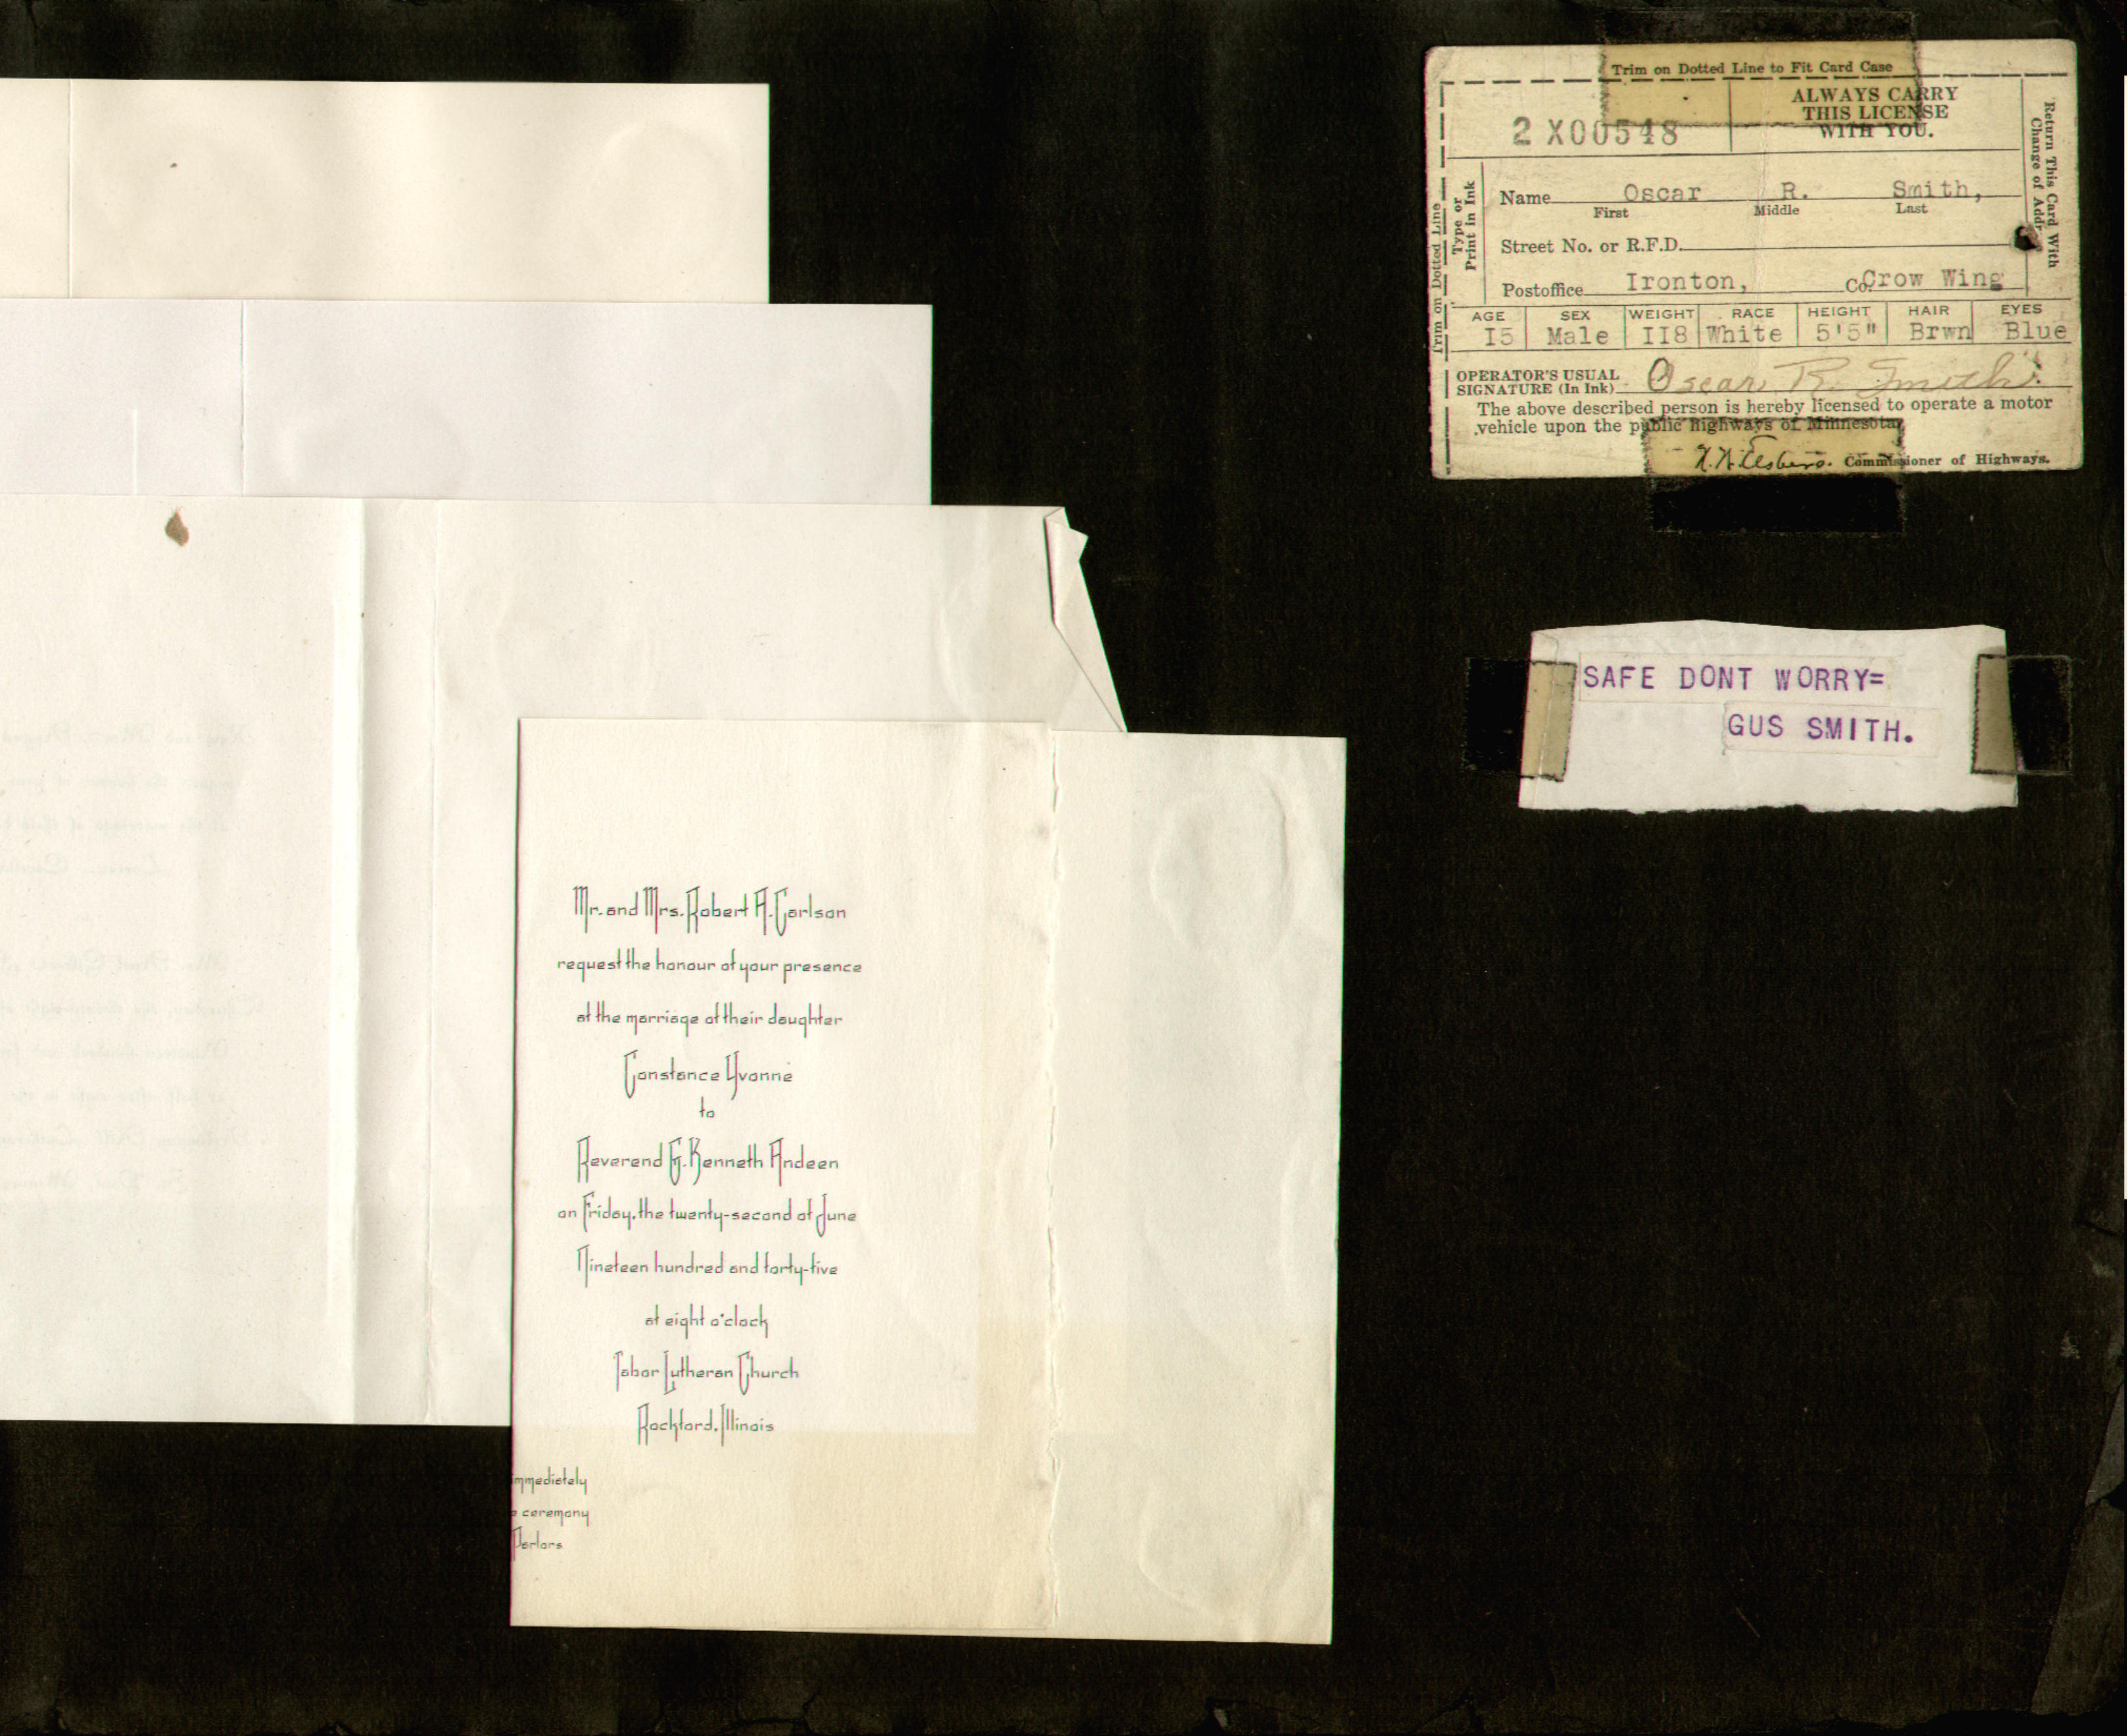 Trim on Dotted Line to Fit Card Case
2 X00548
ALWAYS CARRY
THIS LICENSE
WITH YOU.
Return This Card With
Change of Addr
Trim on Dotted Line
Type or
Print in Ink
Name Oscar R. Smith,
First Middle Last
Street No. or R.F.D.
Postoffice Ironton, Co. Crow Wing
AGE SEX WEIGHT RACE HEIGHT HAIR EYES
I5 Male II8 White 5'5" Brwn Blue
OPERATOR'S USUAL
SIGNATURE (In Ink) Oscar R. Smith
The above described person is hereby licensed to operate a motor
vehicle upon the public highways of Minnesota.
Commissioner of Highways.
SAFE DONT WORRY=
GUS SMITH.
Mr. and Mrs. Robert A. Carlson
request the honour of your presence
at the marriage of their daughter
Constance Yvonne
to
Reverend G. Kenneth Andeen
on Friday, the twenty-second of June
Nineteen hundred and forty-five
at eight o'clock
Tabor Lutheran Church
Rockford, Illinois
immediately
ceremony
Parlors